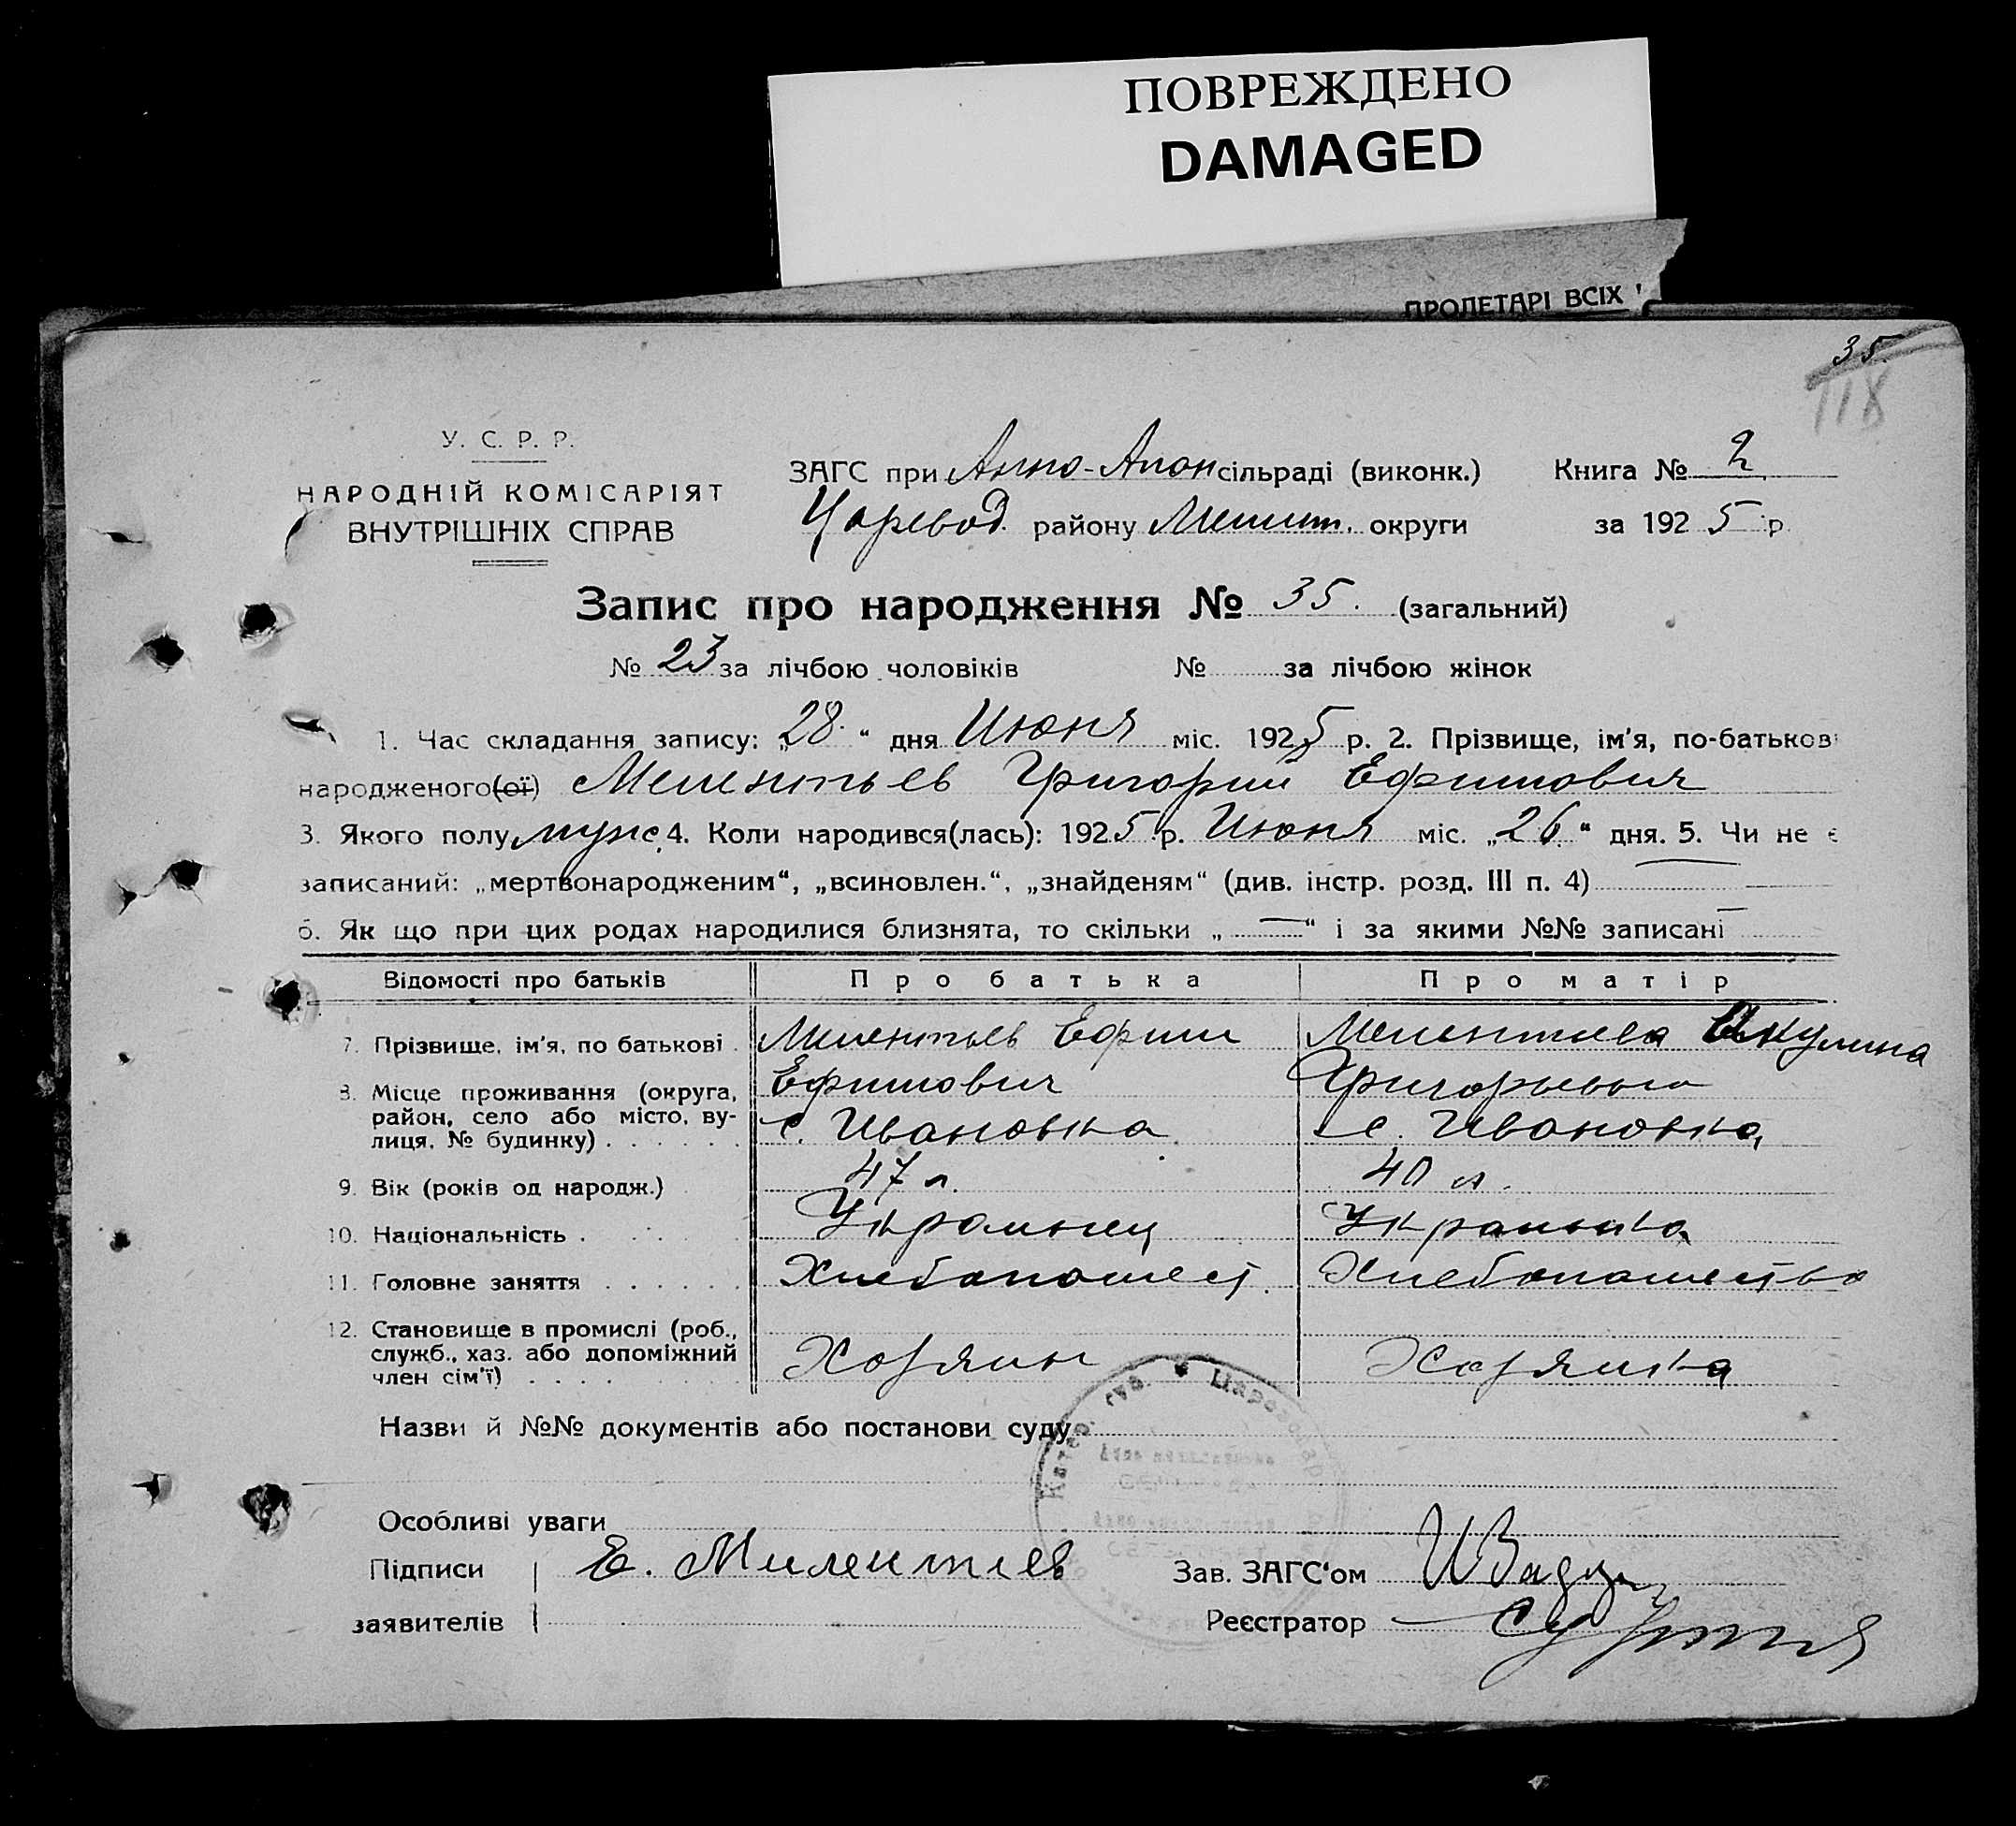 ПОВРЕЖДЕНО
DAMAGED
ПРОЛЕТАРІ ВСІХ
35.
118
У. С. Р. Р.
НАРОДНІЙ КОМІСАРІЯТ
ВНУТРІШНІХ СПРАВ
ЗАГС при Анно-Апон сільраді (виконк.) Книга № 2
Царевод. району Мелит. округи за 1925 р.
Запис про народження № 35. (загальний)
№ 23 за лічбою чоловіків № за лічбою жінок
1. Час складання запису: „28“ дня Июня міс. 1925 р. 2. Прізвище, ім'я, по-батькові
народженого(ої) Мелентьев Григорий Ефимович
3. Якого полу муж. 4. Коли народився(лась): 1925 р. Июня міс. „26“ дня. 5. Чи не є
записаний: „мертвонародженим“, „всиновлен.“, „знайденям“ (див. інстр. розд. III п. 4)
6. Як що при цих родах народилися близнята, то скільки „—“ і за якими №№ записані —
Відомості про батьків Про батька Про матір
7. Прізвище, ім'я, по батькові . Мелентьев Ефим Мелентиева Акулина
Ефимович Григорьевна
8. Місце проживання (округа, район, село або місто, ву-
лиця, № будинку) . . . . . . с. Ивановка с. Ивановка
9. Вік (років од народж.) 47 л. 40 л.
10. Національність . Украинец Украинка
11. Головне заняття . . . . . . Хлебопашест. Хлебопашество
12. Становище в промислі (роб.,
служб., хаз. або допоміжний
член сім'ї) . . . . Хозяин Хозяйка
Назви й №№ документів або постанови суду
Особливі уваги
Підписи Е. Милентиев Зав. ЗАГС'ом
заявителів Реєстратор